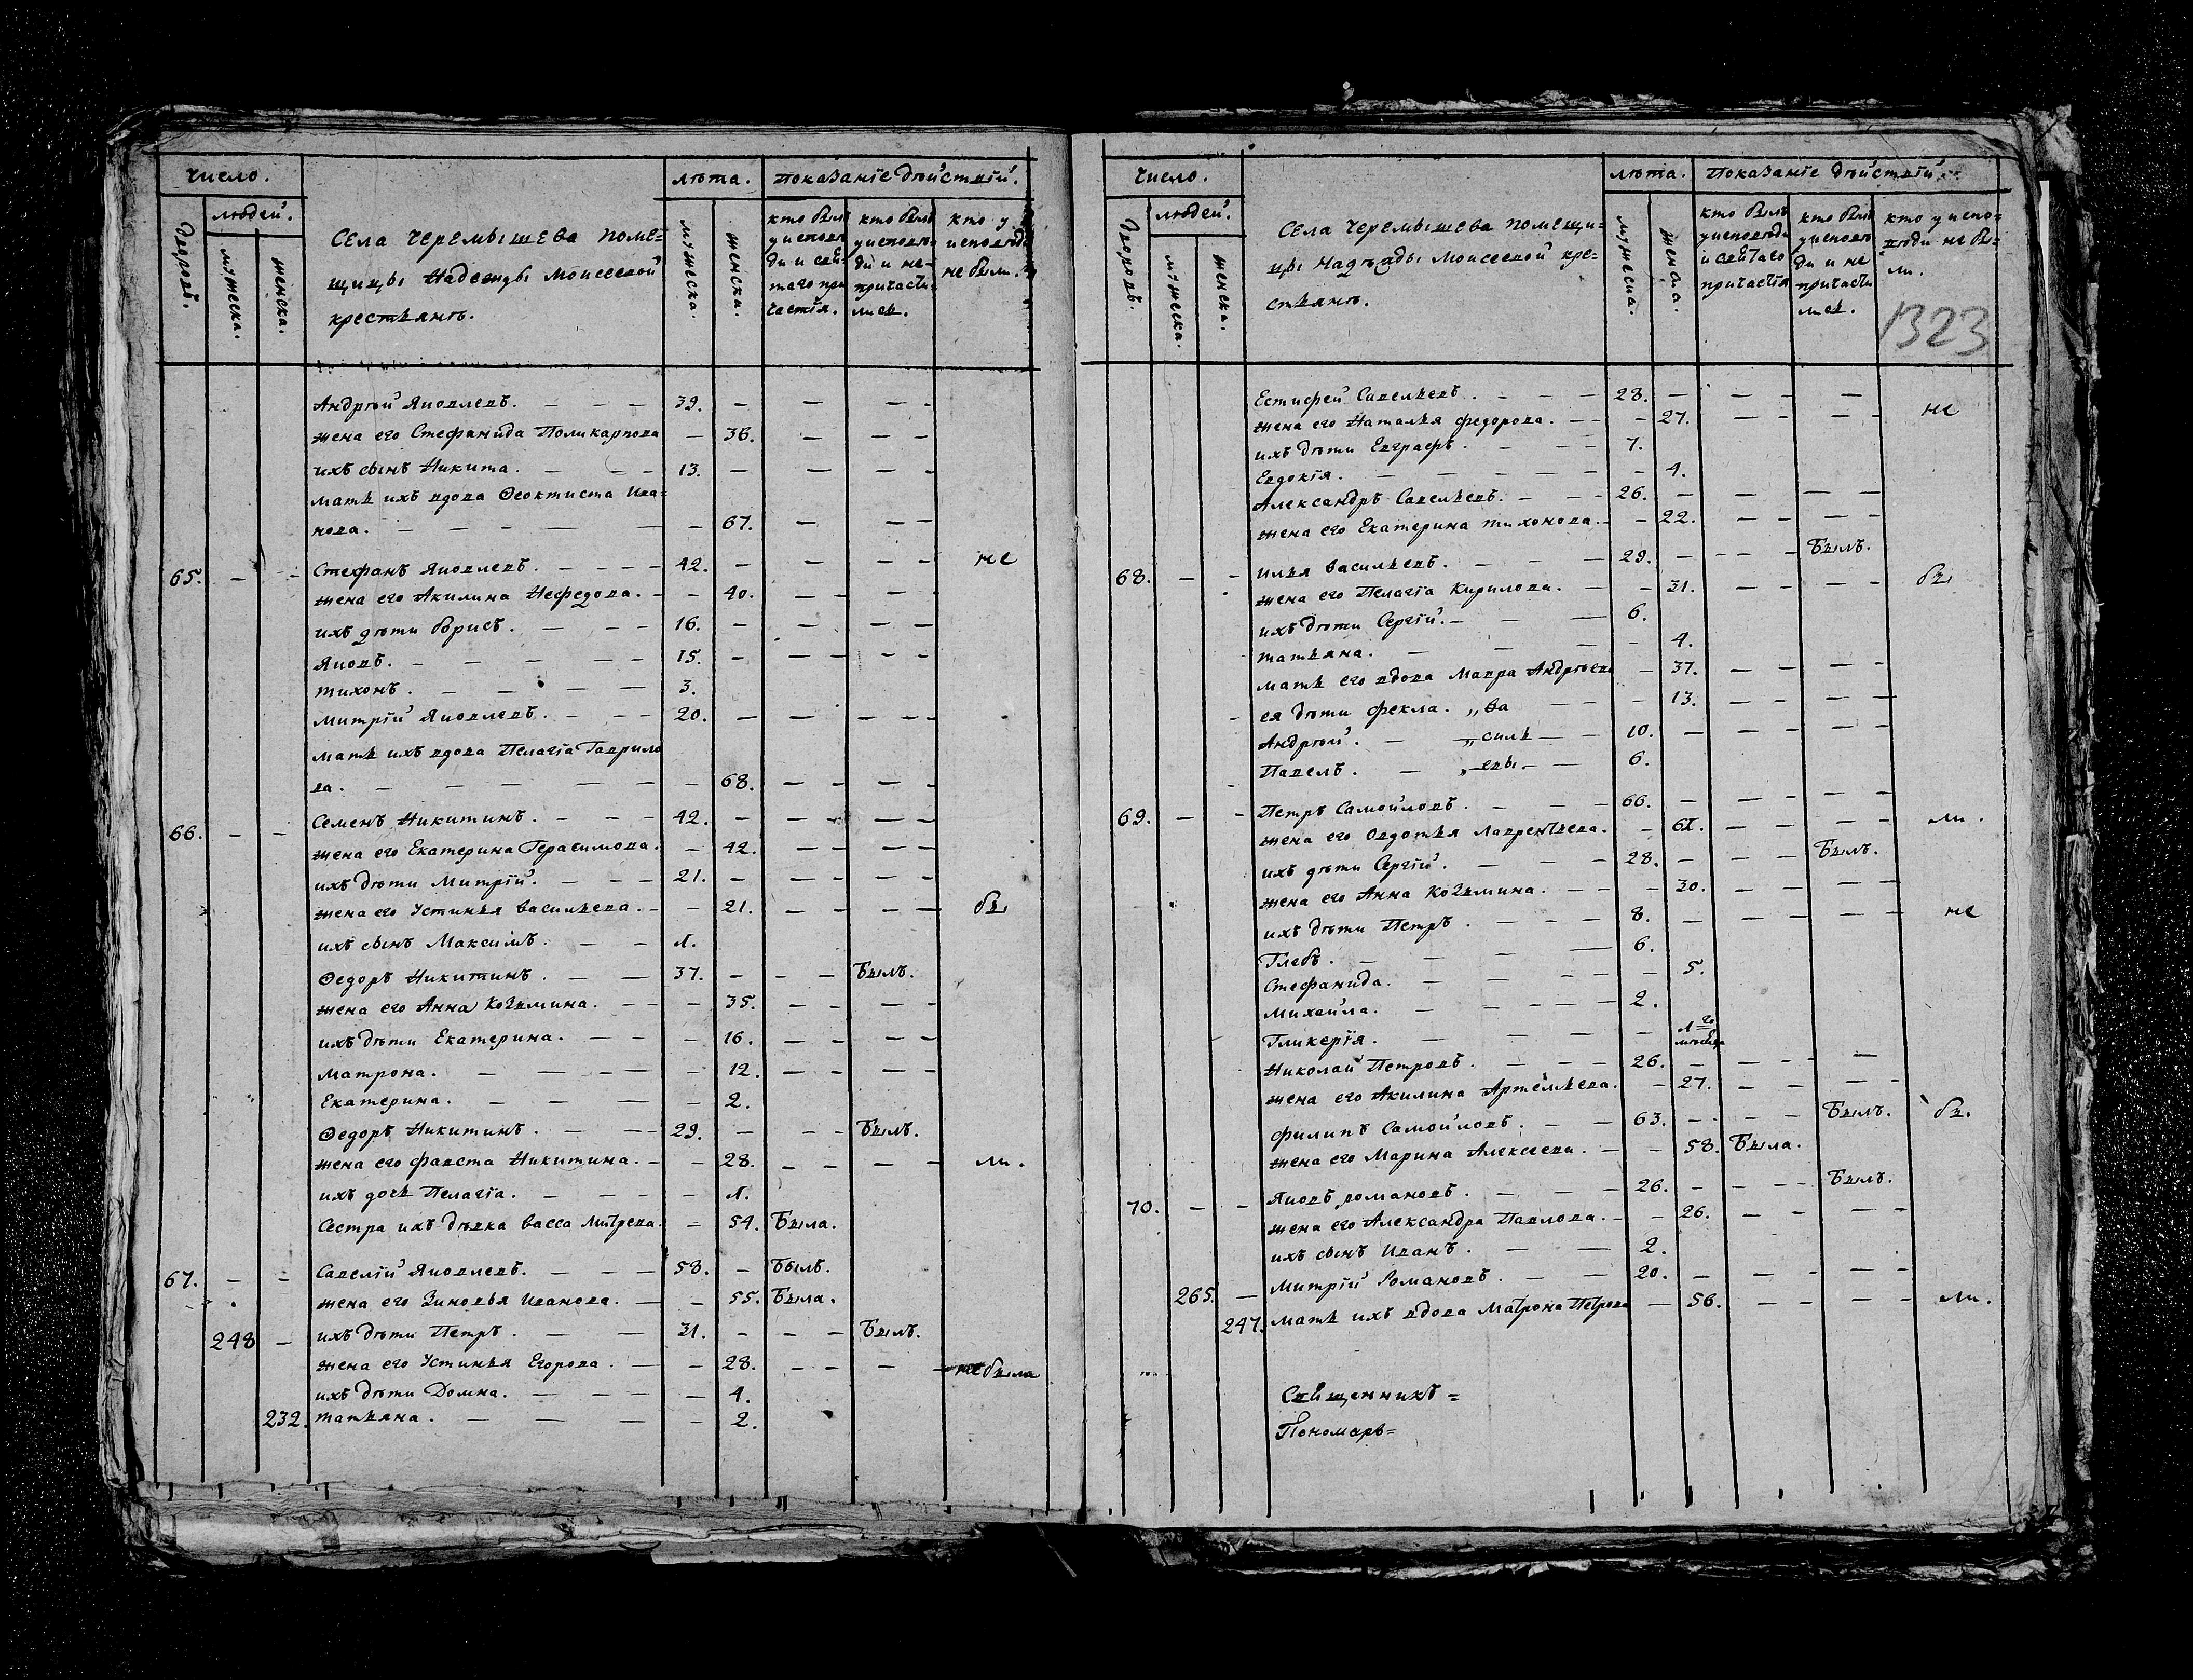 число.
людей.
дворовъ.
мужеска.
женска.
Села Черемышева поме=
щицы Надежды Моисеевой
крестьянъ.
лѣта.
мужеска.
женска.
Показанїе дѣйствїй.
кто былъ у исповѣди и святаго причастїя.
кто былъ у исповѣди и не причастились.
кто у исповѣди не были.
Андрѣй Яковлевъ. — — — 39. — — — —
жена его Стефанида Поликарпова — 36. — — —
ихъ сынъ Никита. — — — 13. — — — —
мать ихъ вдова Ѳеоктиста Ива=
нова. — — — — — — 67. — — —
65. — — Стефанъ Яковлевъ. — — — 42. — — — — не
жена его Акилина Нефедова. — — 40. — — — —
ихъ дѣти Борисъ. — — — 16. — — — —
Яковъ. — — — — — 15. — — — — —
тихонъ. — — — — 3.
Митрїй Яковлевъ. — — — 20. — — — — —
мать ихъ вдова Пелагїа Гаврило
ва. — — — — — — 68. — — — —
66. — — Семенъ Никитинъ. — — — 42. — — — —
жена его Екатерина Герасимова. — 42. — — — —
ихъ дѣти Митрїй. — — — 21. — — — — —
жена его Устинья Васильева. — — 21. — — — — бы
ихъ сынъ Максимъ. — — 1.
Ѳедоръ Никитинъ. — — 37. — — — Былъ.
жена его Анна Козьмина. — — — 35. — — — —
ихъ дѣти Екатерина. — — — 16. — — — —
Матрона. — — — — — 12. — — — —
Екатерина. — — — — 2.
Ѳедоръ Никитинъ. — — — 29. — — — Былъ.
жена его Фавста Никитина. — — 28. — — — — ли.
ихъ дочь Пелагїа. — — — — 1.
Сестра ихъ дѣвка Васса Митрева. — 54. Была.
67. — — Савелїй Яковлевъ. — — — 58. — Былъ.
жена его Зиновья Иванова. — — 55. Была.
248 — ихъ дѣти Петръ. — — 31. — — — Былъ.
жена его Устинья Егорова. — — 28. — — — — не была
ихъ дѣти Домна. — — — — 4.
232. татьяна. — — — — 2.
число.
людей.
дворовъ.
мужеска.
женска.
Села Черемышева помещи=
цы Надѣжды Моисеевой кре=
стьянъ.
лѣта.
мужеска.
женска.
Показанїе дѣйствїй
кто былъ у исповѣди и святаго причастїя
кто былъ у исповѣди и не причастились.
кто у испо=
вѣди не бы=
ли.
1323
Естифей Савельевъ. — — — 28. — — — — не
жена его Наталья Федорова. — — — 27. — — — —
ихъ дѣти Евграфъ. — — — 7.
Евдокїя. — — — — — — 4.
Александръ Савельевъ. — — — 26. — — — —
жена его Екатерина тихонова. — — 22. — — — —
68. — — Илья Васильевъ. — — — 29. — — — — Былъ.
жена его Пелагїа Кирилова. — — 31. — — — — бы
ихъ дѣти Сергїй. — — — 6.
татьяна. — — — — 4.
мать его вдова Мавра Андрѣева — 37. — — — —
ея дѣти Фекла. „Ва — — — 13. — — — —
Андрѣй. — „силь — — 10. — — — — —
Павелъ. — „евы. — — 6.
69. — — Петръ Самойловъ. — — — 66. — — — — —
жена его Овдотья Лаврентьева. — 61. — — — — ли.
ихъ дѣти Сергїй. — — — 28. — — — Былъ.
жена его Анна Козьмина. — — — 30. — — — —
ихъ дѣти Петръ. — — — 8. — — — — — не
Глебъ. — — — — 6.
Стефанида. — — — — — 5.
Михайла. — — — — — 2.
Гликерїя. — — — — — 1го мѣсяца
Николай Петровъ. — — — 26. — — — — —
жена его Акилина Артемьева. — 27. — — — —
Филипъ Самойловъ. — — 63. — — — Былъ. бы.
жена его Марина Алексеева. — — 58. Была.
70. — — Яковъ романовъ. — — — 26. — — — Былъ.
жена его Александра Павлова. — — 26. — — — —
ихъ сынъ Иванъ. — — 2.
265. — Митрїй Романовъ. — — 20. — — — — —
247. мать ихъ вдова Матрона Петрова — 56. — — — — ли.
Священникъ =
Пономарь=